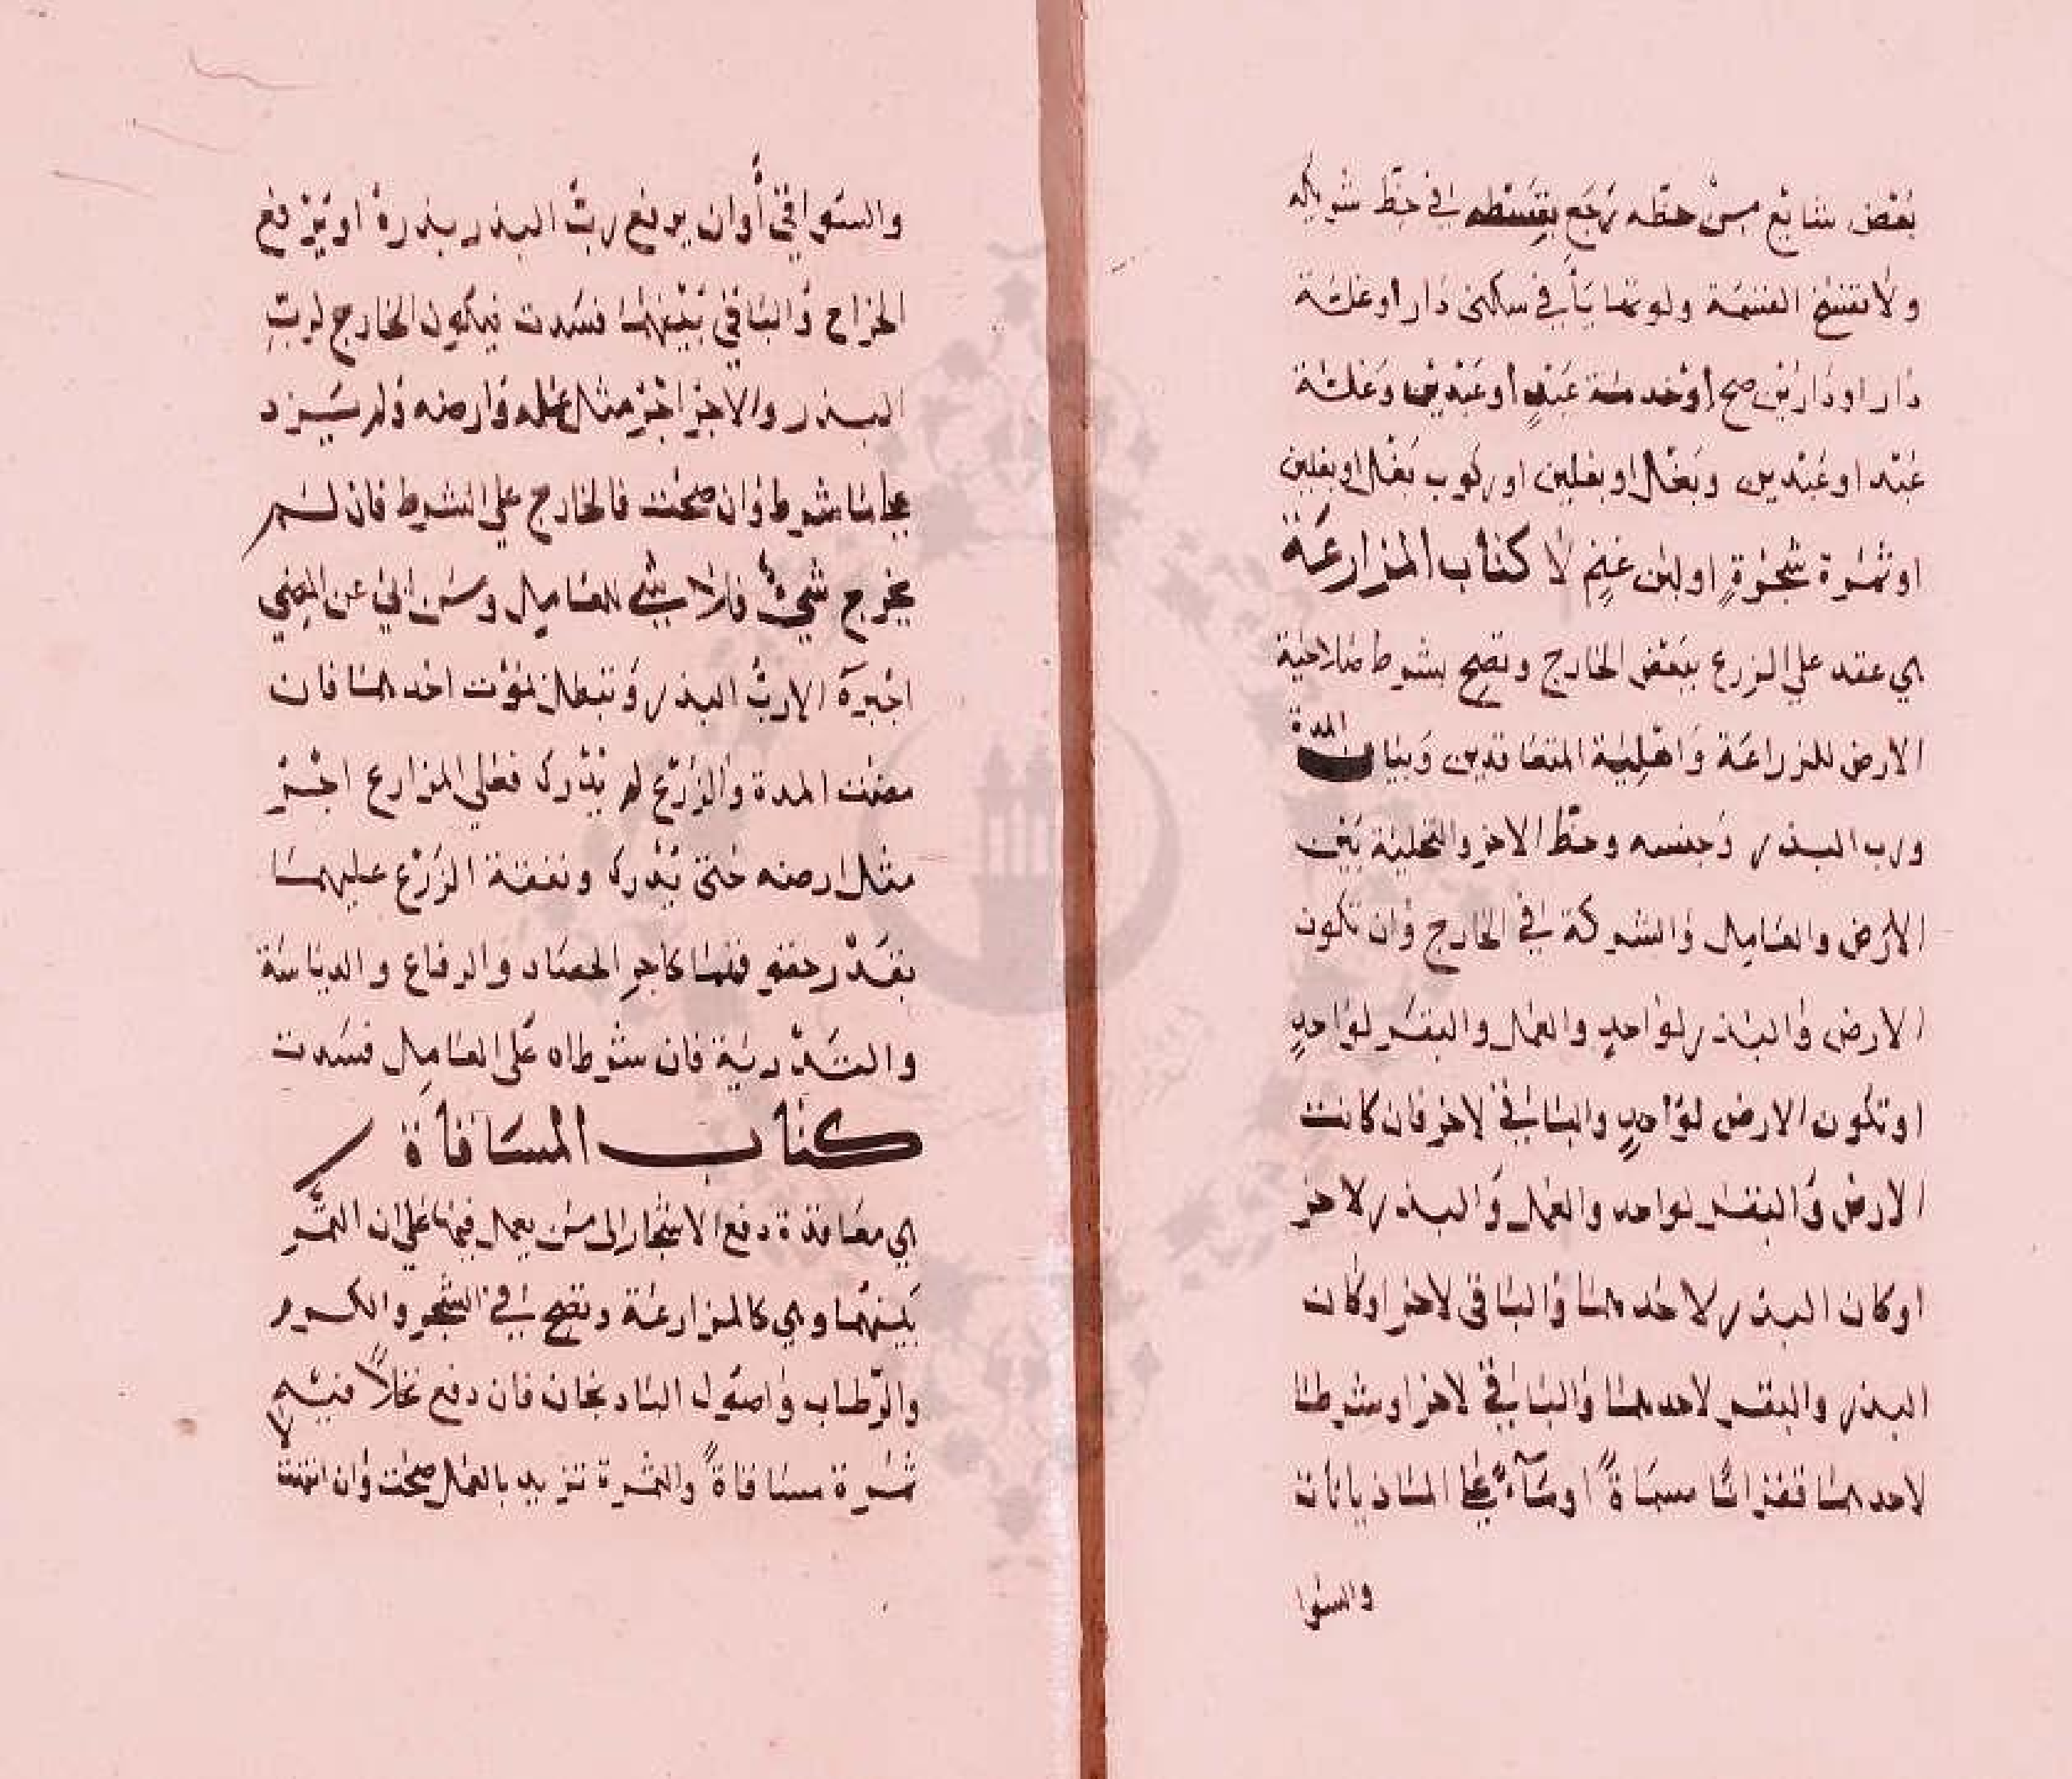 بعض شايع من حظه رجع بقسطه في حظ شريكه
ولا تفسخ القسمة ولو تهايأ في سكنى دار او غلة
دار او دارين صح أو خدمة عبد أو عبدين وغلة
عبد او عبدين وبغل او بغلين او ركوب بغل او بغلين
او ثمرة شجرة او لبن غنم لا كتاب المزارعة
هي عقد علي الزرع ببعض الخارج وتصح بشرط صلاحية
الارض للزراعة واهلية المتعاقدين وبيان المدة
ورب البذر وجنسه وحظ الاخر والتخلية بين
الارض والعامل والشركة في الخارج وان تكون
الارض والبذر لواحد والعمل والبقر لواحد
او تكون الارض لواحد والباقي لاخر فان كانت
الارض والبقر لواحد والعمل والبذر لاخر
او كان البذر لاحدهما والباقي لاخر او كان
البذر والبقر لاحدهما والباقي لاخر او شرطا
لاحدهما قفزانا مسماة او مآء علي الماذيانات
والسوا
والسواقي أو ان يرفع رب البذر بذره او يرفع
الخراج والباقي بينهما فسدت فيكون الخارج لرب
البذر والاخر اجر مثل عمله وارضه ولم يزد
علي ما شرط وان صحت فالخارج علي الشرط فان لم
يخرج شيء فلا شي للعامل ومن ابي عن المضي
اجبر الا رب البذر وتبطل بموت احدهما فان
مضت المدة والزرع لم يدرك فعلي المزارع اجر
مثل ارضه حتى يدرك ونفقة الزرع عليهما
بقدر حقوقهما كاجر الحصاد والرفاع والدياسة
والتذرية فان شرطاه على العامل فسدت
كتاب المساقاة
هي معاقدة دفع الاشجار الى من يعمل فيها علي ان الثمر
بينهما وهي كالمزارعة وتصح في الشجر والكرم
والرطاب واصول الباذنجان فان دفع نخلا فيه
ثمرة مساقاة والثمرة تزيد بالعمل صحت وان انتهت لا